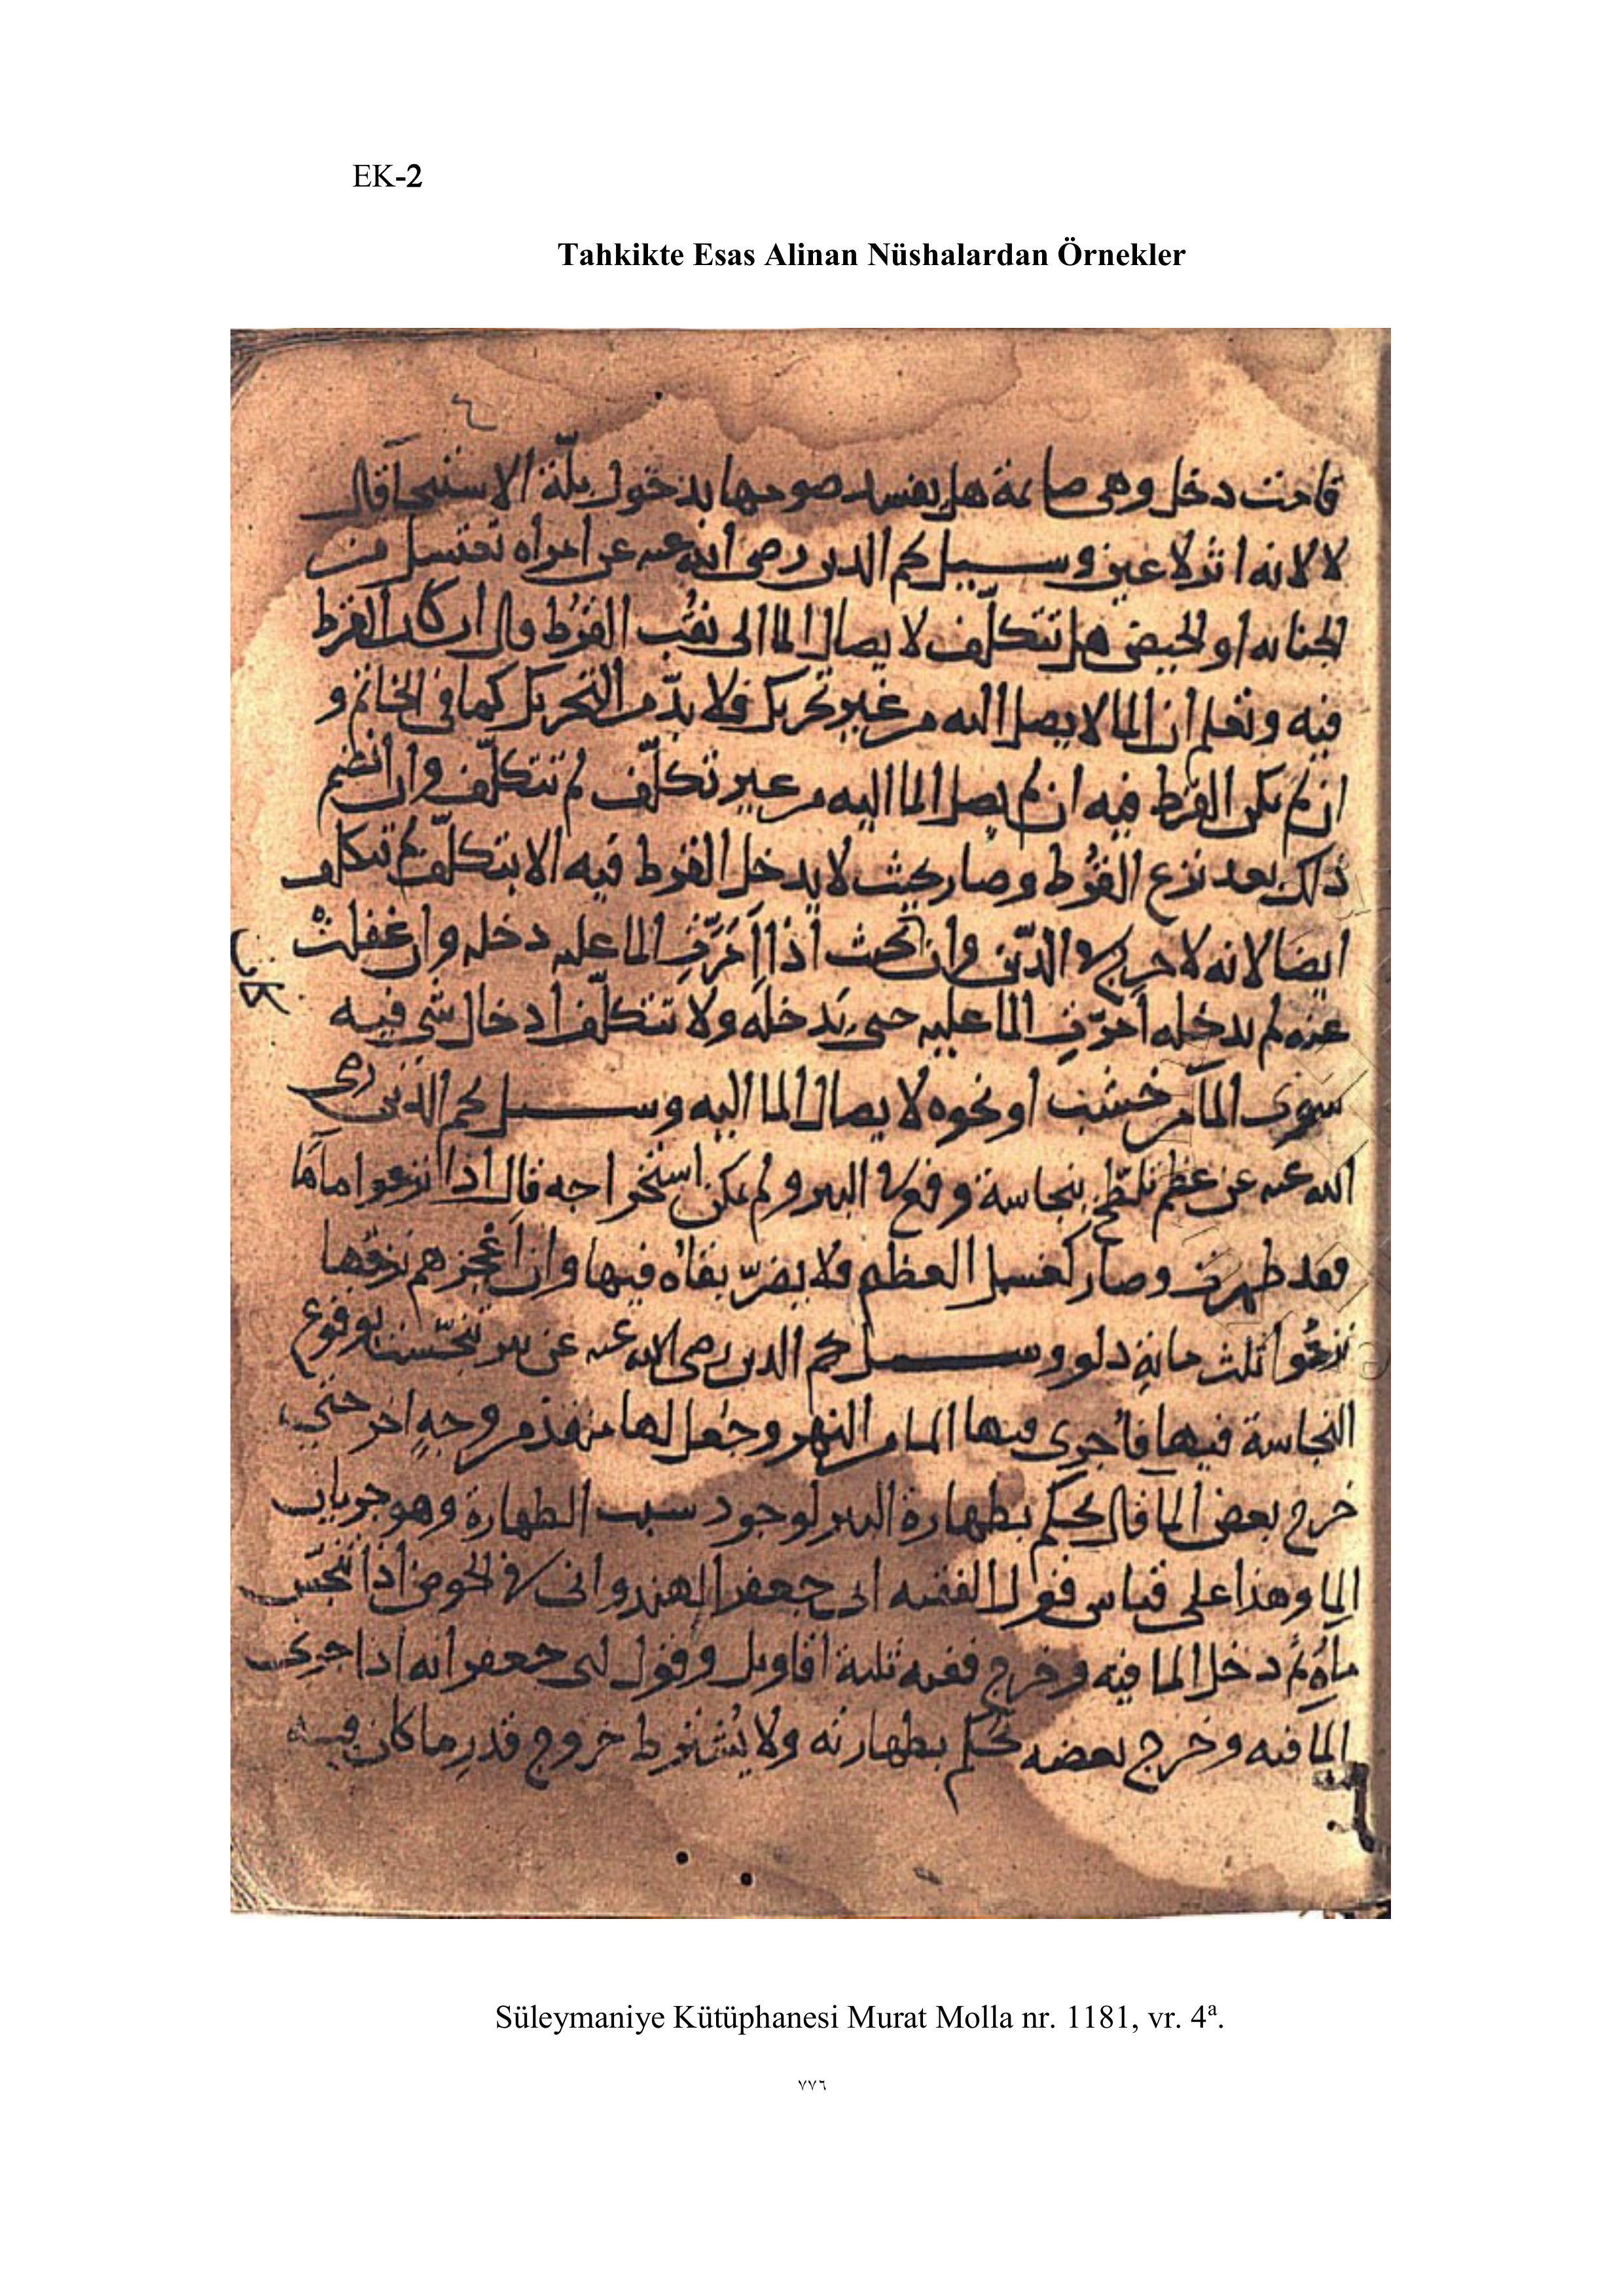 EK-2
Tahkikte Esas Alinan Nüshalardan Örnekler
قامت دخل وهى صائمة هل يفسد صومها بدخول بلّة الاستنجآ قال
لا لانه اثر لا عين وسيل نجم الدين رضى الله عنه عن امراه تغتسل من
الجنابه او الحيض هل تتكلّف لايصال الما الى ثقب القُرْط قال ان كان القرط
فيه وتعلم ان الما لا يصل اليه من غير تحريك فلا بدّ من التحريك كما فى الخاتم و
ان لم يكن القرط فيه ان لم يصل الما اليه من غير تكلّف لم تتكلّف وان انضم
ذلك بعد نزع القُرْط وصار بحيث لا يدخل القرط فيه الا بتكلّف لم تتكلف
ايضا لانه لا حرج فى الدّين وان كانت اذا اَمَرَّتِ الما عليه دخله وان غفلتْ
عنه ولم يدخله اَمَرّتِ الما عليه حتى يَدخله ولا تتكلّف ادخال شى فيه
سوى المآ من خشب او نحوه لايصال الما اليه وسيل نجم الدين رضى
الله عنه عن عظم تلطّخ بنجاسة وقع فى البير ولم يمكن استخراجه قال اذا نزعوا ماها
فقد طهرت وصار كغسل العظم فلا يضرّ بقاه فيها وان اعجزهم نزفها
نزحُوا ثلث مائةِ دلو وسيل نجم الدين رضى الله عنه عن بير تنجّست بوقوع
النجاسة فيها فاُجرى فيها الما من النهر وجُعل لها منفذ من وجهٍ اخر حتى
خرج بعض الما قال يحكم بطهارة البير لوجود سبب الطهارة وهو جريان
الما وهذا على قياس قول الفقيه ابى جعفر الهندوانى فى الحوض اذا تنجّس
ماؤه ثم دخل الما فيه وخرج ففيه ثلثة اقاويل وقول ابى جعفر انه اذا جرى
الما فيه وخرج بعضه يُحكم بطهارته ولا يُشترط خروج قدر ما كان فيه
Süleymaniye Kütüphanesi Murat Molla nr. 1181, vr. 4ª.
٧٧٦